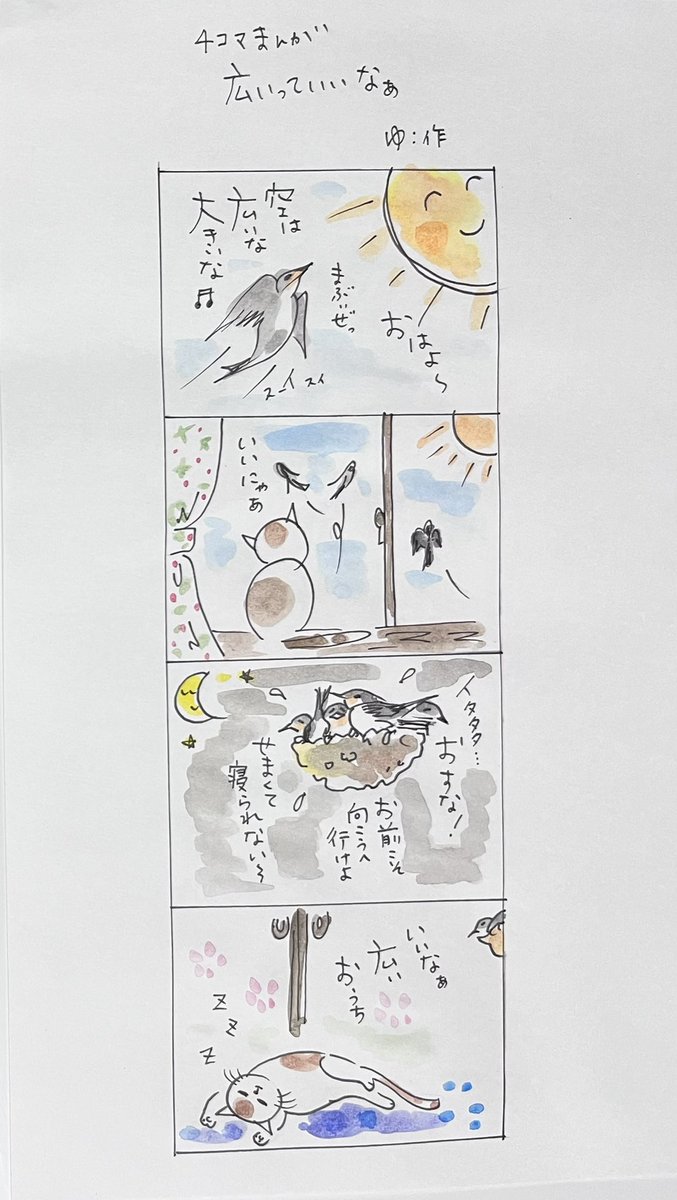 4コマまんが
広いっていいなぁ
ゆ:作
空は
広いな
大きいな♬
まぶいぜっ
おはよ〜
スーイスイ
いいにゃあ
イタタタ…
おすな!
お前こそ
向こうへ
行けよ
せまくて
寝られない〜
いいなぁ
広い
おうち
z
z
z